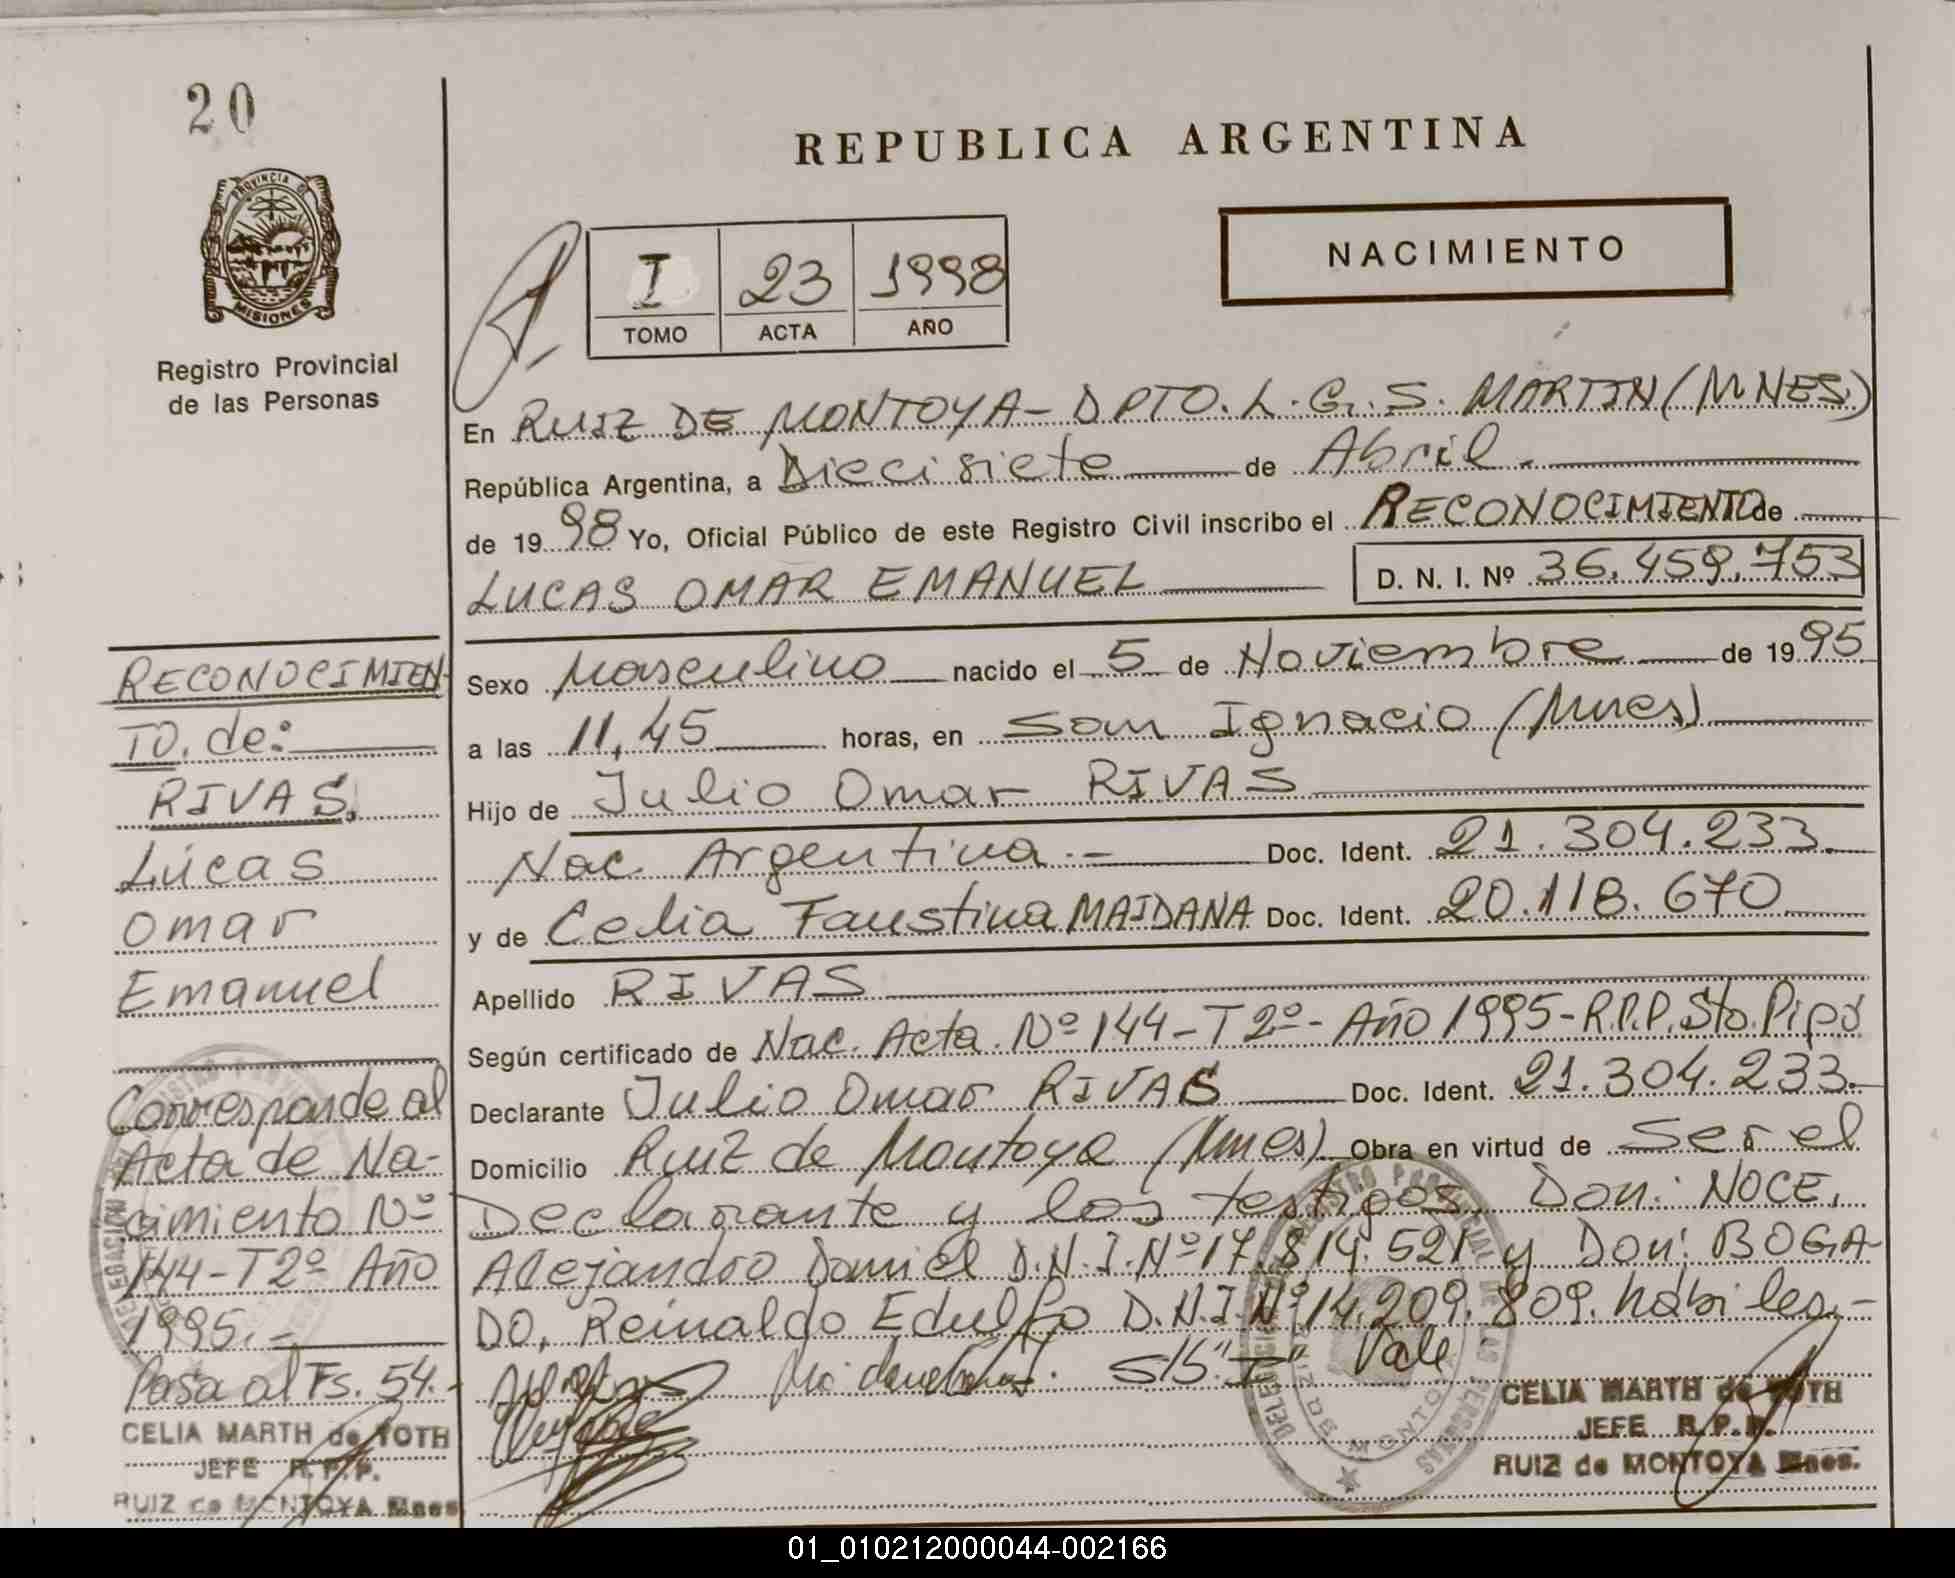 20
REPUBLICA ARGENTINA
PROVINCIA DE
MISIONES
Registro Provincial
de las Personas
I 23 1998
TOMO ACTA AÑO
NACIMIENTO
En RUIZ DE MONTOYA - DPTO. L. G. S. MARTIN (MNES.)
República Argentina, a Diecisiete de Abril.
de 1998 Yo, Oficial Público de este Registro Civil inscribo el RECONOCIMIENTO de
LUCAS OMAR EMANUEL D. N. I. Nº 36.459.753
Sexo Masculino nacido el 5 de Noviembre de 1995
a las 11,45 horas, en San Ignacio (Mnes)
Hijo de Julio Omar RIVAS
Nac. Argentina.- Doc. Ident. 21.304.233.
y de Celia Faustina MAIDANA Doc. Ident. 20.118.670
Apellido RIVAS
Según certificado de Nac. Acta. Nº 144 - T 2º - Año 1995 - R.P.P. Sto. Pipó
Declarante Julio Omar RIVAS Doc. Ident. 21.304.233.-
Domicilio Ruiz de Montoya (Mnes) Obra en virtud de Ser el
Declarante y los testigos, Don: NOCE,
Alejandro Daniel D.N.I. Nº 17.814.521 y Don: BOGA-
DO, Reinaldo Edulfo D.N.I. Nº 14.209.809. hábiles.-
S/S "I" Vale
CELIA MARTH de TOTH
JEFE R.P.P.
RUIZ de MONTOYA Mnes.
RECONOCIMIEN-
TO. de:
RIVAS.
Lucas
Omar
Emanuel
Corresponde al
Acta de Na-
cimiento Nº
144 - T 2º Año
1995.-
Pasa al Fs. 54.-
CELIA MARTH de TOTH
JEFE R.P.P.
RUIZ de MONTOYA Mnes
01_010212000044-002166